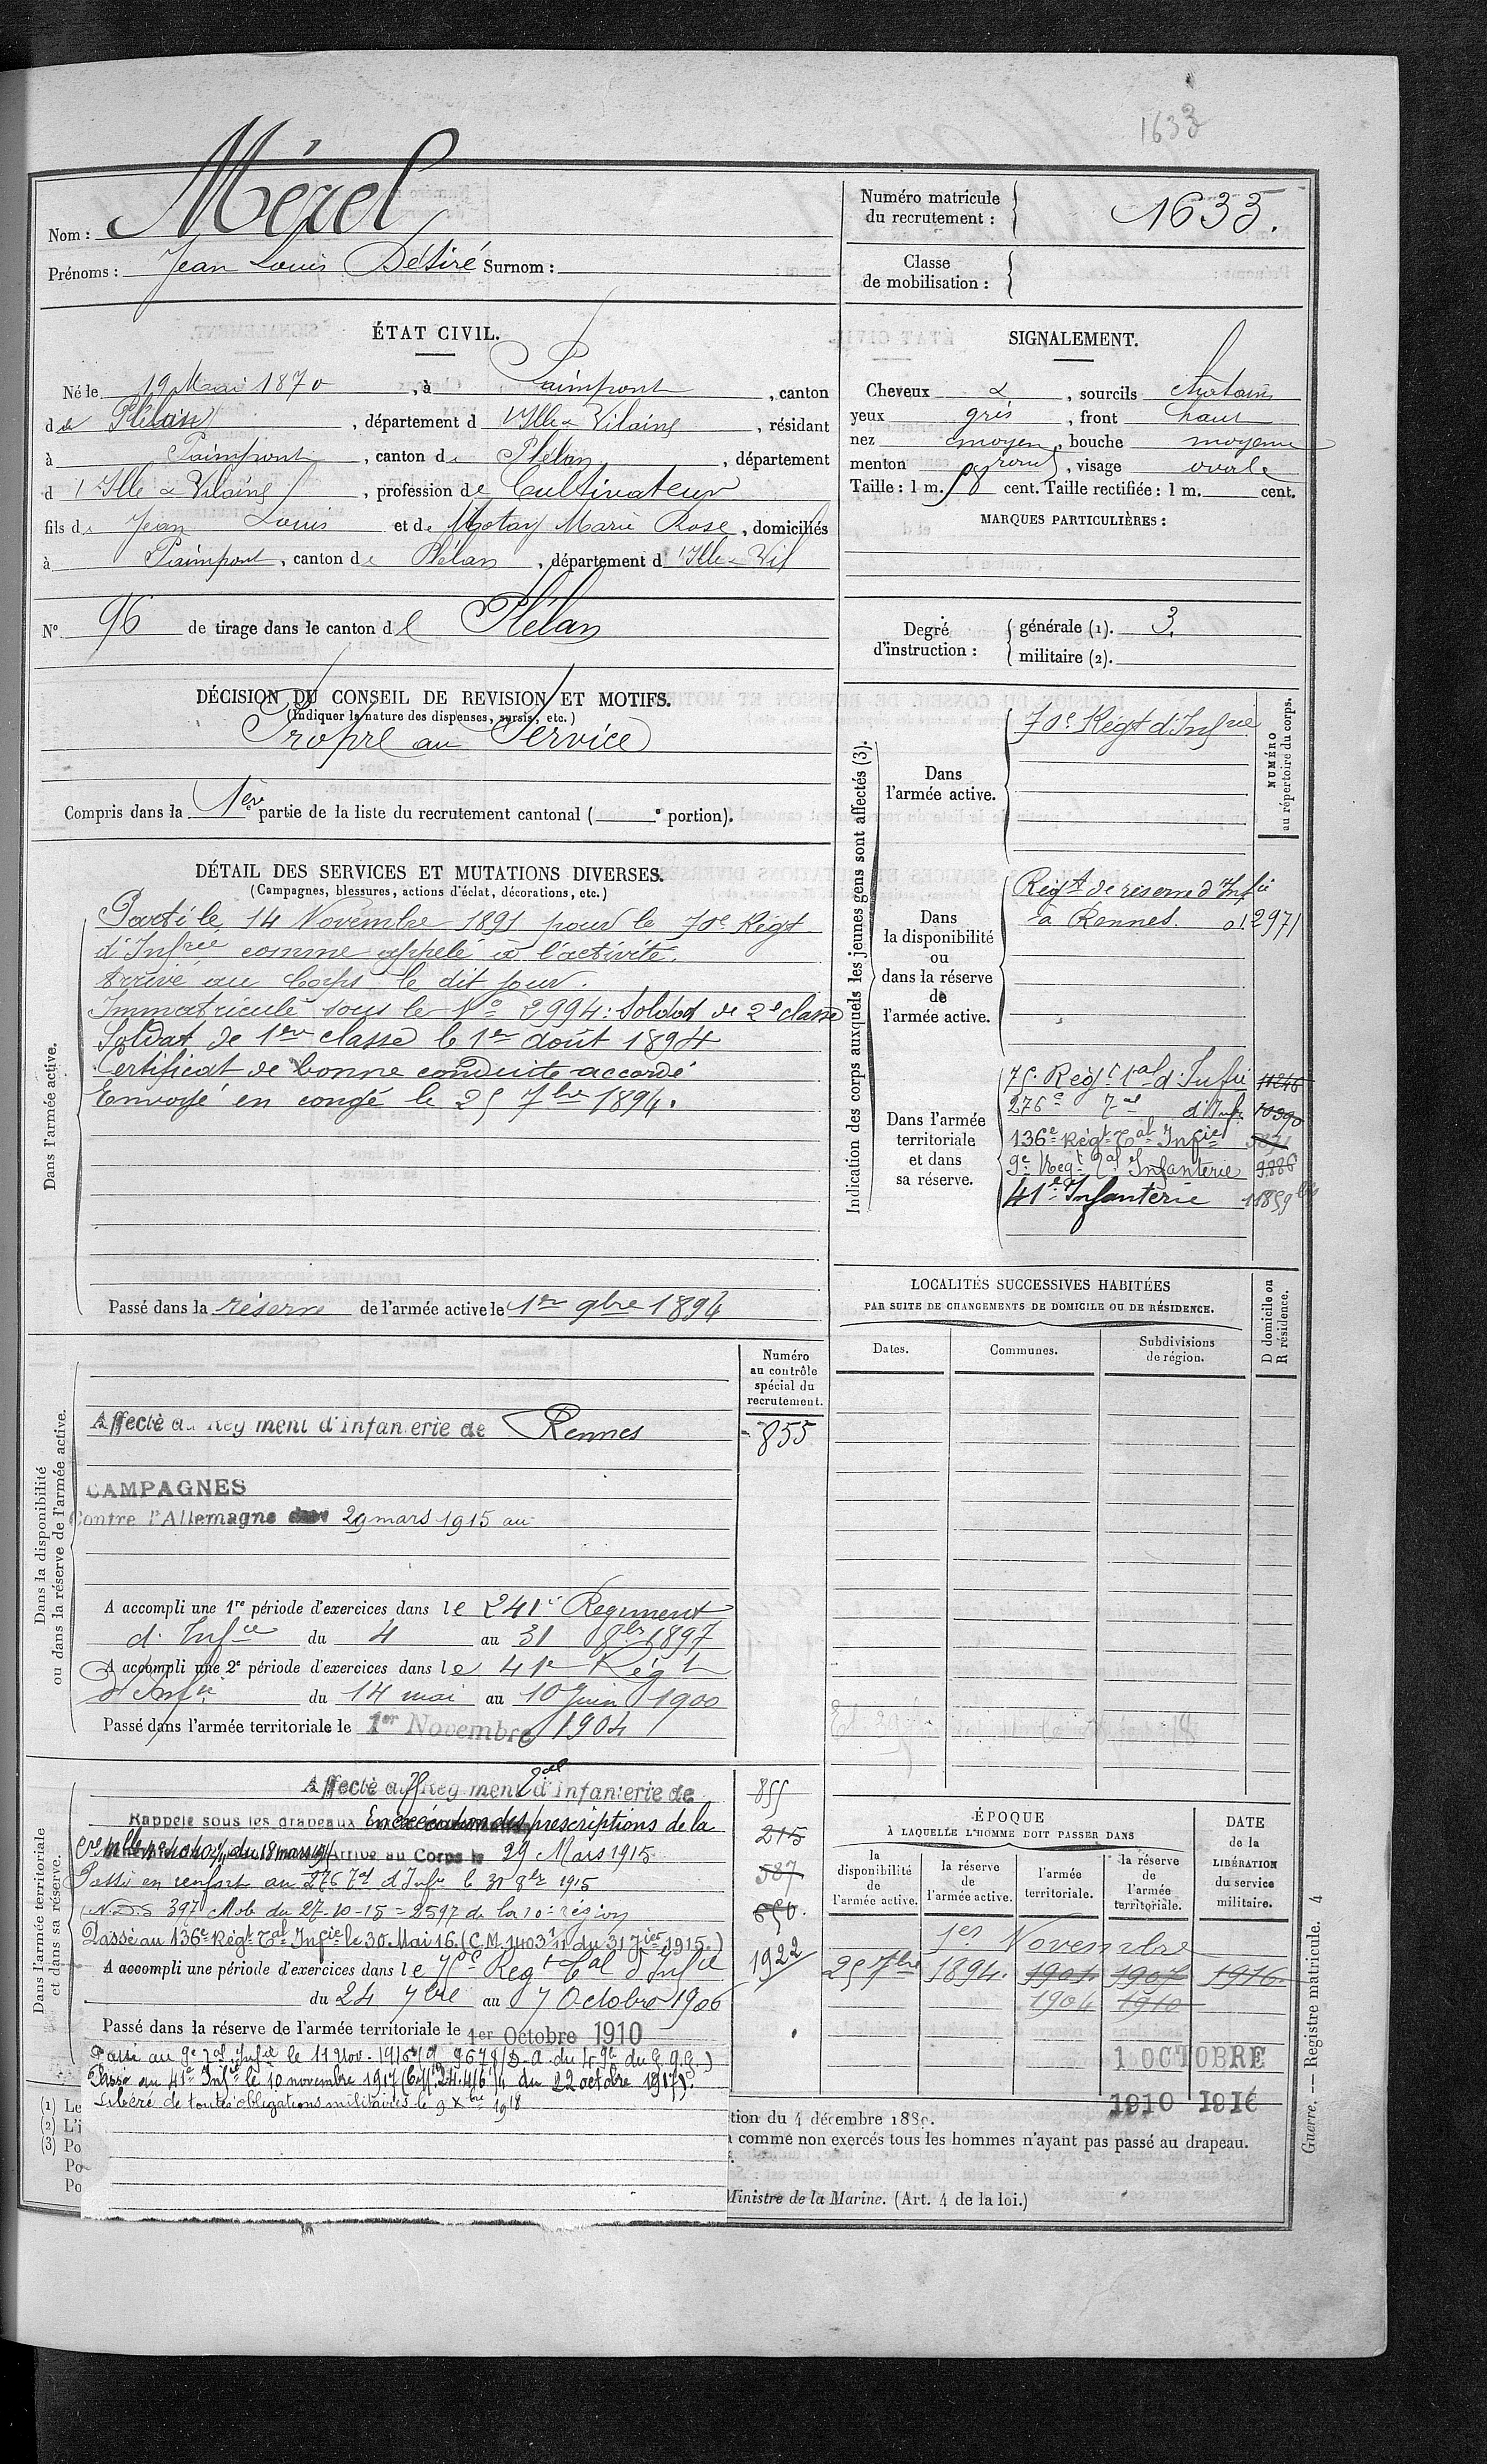 1633
Nom : Mérel
Prénoms : Jean Louis Désiré Surnom :
Numéro matricule
du recrutement : 1633.
Classe
de mobilisation :
ÉTAT CIVIL.
Né le 19 Mai 1870, à Paimpont, canton
de Plélan, département d'Ille & Vilaine, résidant
à Paimpont, canton de Plélan, département
d'Ille & Vilaine, profession de Cultivateur
fils de Jean Louis et de Marie Rose, domiciliés
à Paimpont, canton de Plélan, département d'Ille & Vil
N° 96 de tirage dans le canton de Plélan
SIGNALEMENT.
Cheveux &, sourcils chatains
yeux gris, front haut
nez moyen, bouche moyenne
menton rond, visage ovale
Taille : 1 m. cent. Taille rectifiée : 1 m. cent.
MARQUES PARTICULIÈRES :
Degré
d'instruction :
générale (1). 3.
militaire (2).
DÉCISION DU CONSEIL DE REVISION ET MOTIFS.
(Indiquer la nature des dispenses, sursis, etc.)
Propre au Service
Compris dans la 1ère partie de la liste du recrutement cantonal ( e portion).
DÉTAIL DES SERVICES ET MUTATIONS DIVERSES.
(Campagnes, blessures, actions d'éclat, décorations, etc.)
Dans l'armée active.
Parti le 14 Novembre 1891 pour le 70e Régt
d'Infrie comme appelé à l'activité.
Arrivé au Corps le dit jour.
Immatriculé sous le No 2994 : Soldat de 2e classe
Soldat de 1ère classe le 1er Août 1894
Certificat de bonne conduite accordé
Envoyé en congé le 25 7bre 1894.
Passé dans la réserve de l'armée active le 1er 9bre 1894
Indication des corps auxquels les jeunes gens sont affectés (3).
NUMÉRO
au répertoire du corps.
Dans
l'armée active.
70e Régt d'Infrie
Dans
la disponibilité
ou
dans la réserve
de
l'armée active.
Régt de réserve d'Infie
à Rennes. 012971
Dans l'armée
territoriale
et dans
sa réserve.
75e Régt tal d'Infie 11246
276e tal d'Infie 10390
136e Régt Tal Infie
9e Régt Tal Infanterie 9886
41e Infanterie 11859 bis
LOCALITÉS SUCCESSIVES HABITÉES
PAR SUITE DE CHANGEMENTS DE DOMICILE OU DE RÉSIDENCE.
D domicile ou
R résidence.
Dates.
Communes.
Subdivisions
de région.
Dans la disponibilité
ou dans la réserve de l'armée active.
Numéro
au contrôle
spécial du
recrutement.
Affecté au Régiment d'Infanterie de Rennes
855
CAMPAGNES
Contre l'Allemagne du 29 mars 1915 au
A accompli une 1re période d'exercices dans le 241e Régiment
d'Infie du 4 au 31 8bre 1897
A accompli une 2e période d'exercices dans le 41e Régt
d'Infie du 14 mai au 10 Juin 1900
Passé dans l'armée territoriale le 1er Novembre 1904
Dans l'armée territoriale
et dans sa réserve.
Affecté au 75 Régiment Tal d'Infanterie de
855
Rappelé sous les drapeaux En exécution des prescriptions de la
215
du 18 mars Arrivé au Corps le 29 Mars 1915
587
Passé en renfort au 276 Tal d'Infie le 30 8bre 1915
N.D.S 397 Mob du 27-10-15 = 2597 de la 10e région
650.
Passé au 136e Régt Tal Infie le 30 Mai 16 (C.M. 1403 1/11 du 31 Jier 1915.)
A accompli une période d'exercices dans le 75e Régt Tal d'Infie
1922
du 24 7bre au 7 Octobre 1906
Passé dans la réserve de l'armée territoriale le 1er Octobre 1910
Passé au 9e Tal Infie le 11 Nov. 1916 9678 (D.A. du 4 9bre du G.Q.G.)
Passé au 41e Infie le 10 novembre 1917 du 22 octobre 1917).
Libéré de toutes obligations militaires le 9 Xbre 1918
ÉPOQUE
À LAQUELLE L'HOMME DOIT PASSER DANS
la
disponibilité
de
l'armée active.
la réserve
de
l'armée active.
l'armée
territoriale.
la réserve
de
l'armée
territoriale.
DATE
de la
LIBÉRATION
du service
militaire.
1er Novembre
25 7bre 1894. 1901 1907 1916
1904 1910
1 OCTOBRE
1910 1916
(1) Le
(2) L'i
(3) Po
Po
Po
tion du 4 décembre 1889.
comme non exercés tous les hommes n'ayant pas passé au drapeau.
Ministre de la Marine. (Art. 4 de la loi.)
Guerre. — Registre matricule. 4